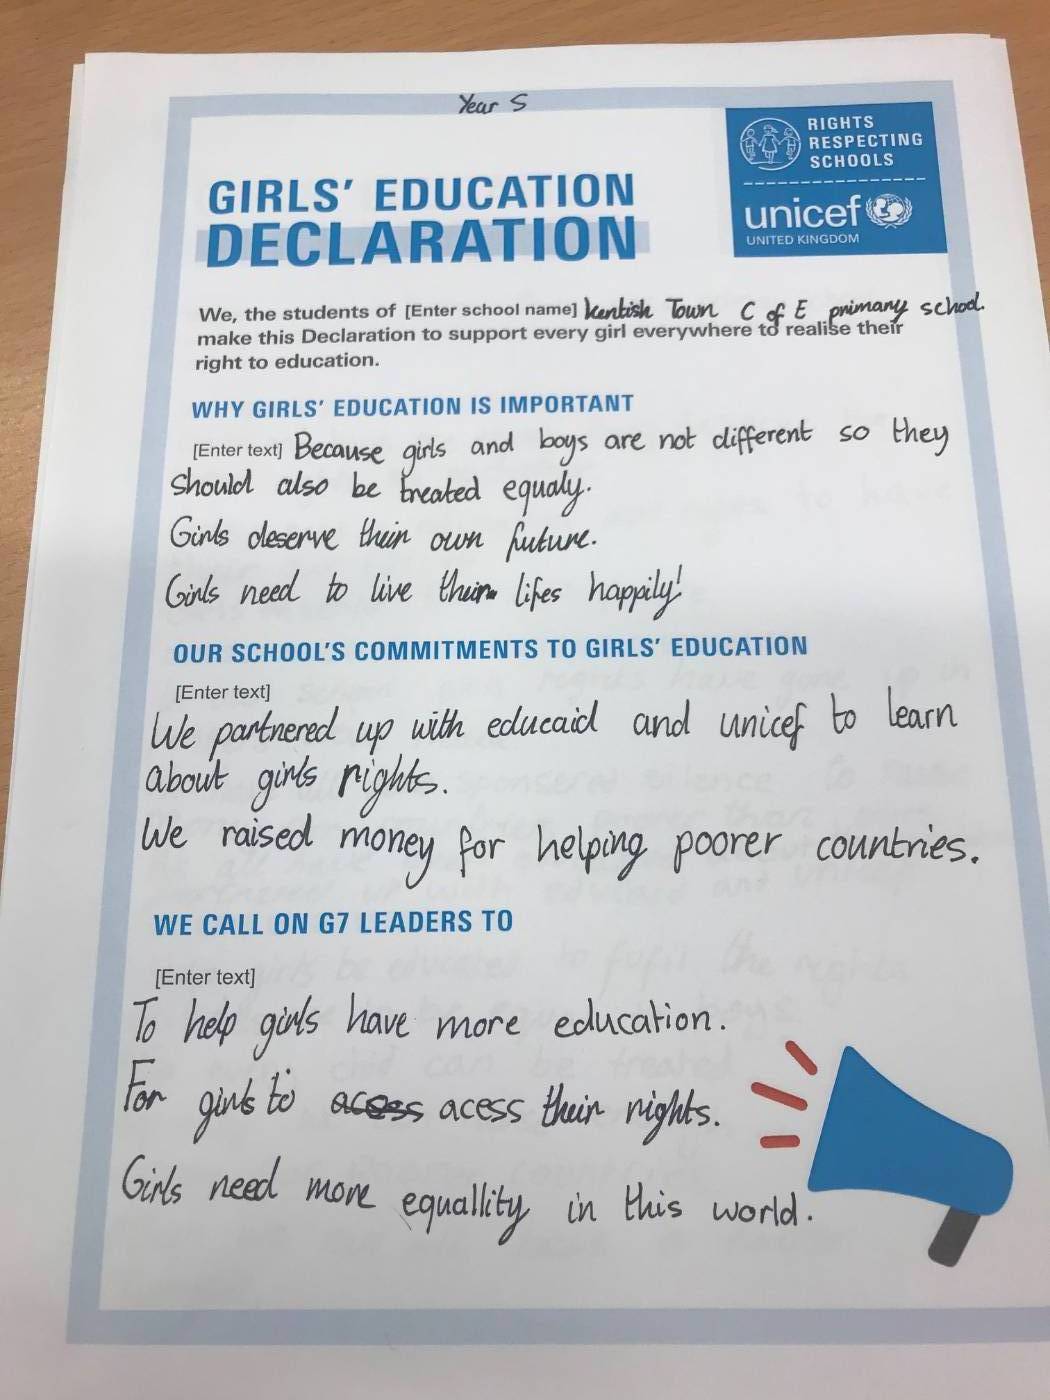 Year 5
RIGHTS
RESPECTING
SCHOOLS
unicef
UNITED KINGDOM
GIRLS' EDUCATION
DECLARATION
We, the students of [Enter school name] kentish Town C of E primary school.
make this Declaration to support every girl everywhere to realise their
right to education.
WHY GIRLS' EDUCATION IS IMPORTANT
[Enter text] Because girls and boys are not different so they
should also be treated equaly.
Girls deserve their own future.
Girls need to live their lifes happily!
OUR SCHOOL'S COMMITMENTS TO GIRLS' EDUCATION
[Enter text]
We partnered up with educaid and unicef to learn
about girls rights.
We raised money for helping poorer countries.
WE CALL ON G7 LEADERS TO
[Enter text]
To help girls have more education.
For girls to acess their rights.
Girls need more equallity in this world.